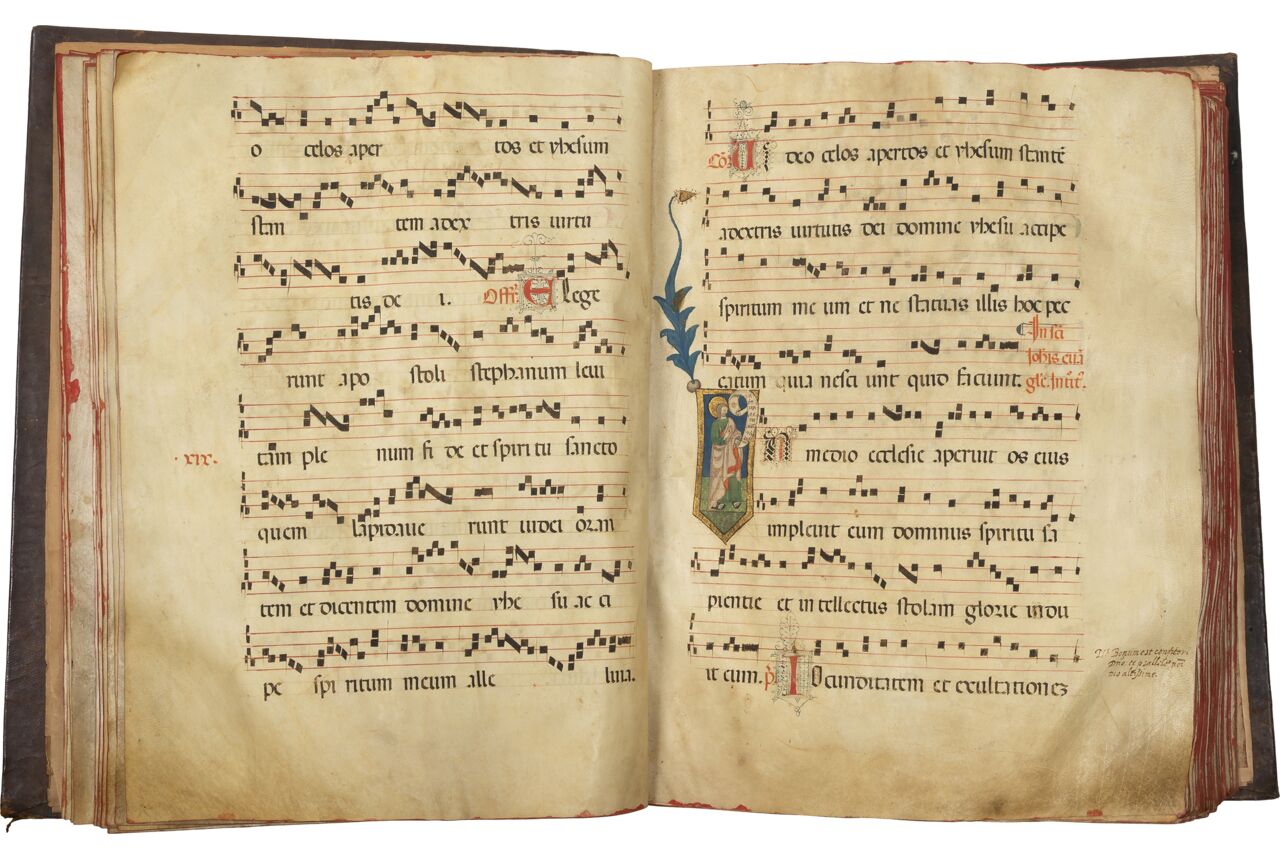 o celos aper tos et yhesum
stan tem adex tris uirtu
tis de i. Offr̄. Elege
runt apo stoli stephanum leui
tam ple num fi de et spiri tu sancto
·xix·
quem lapidaue runt iudei oran
tem et dicentem domine yhe su ac ci
pe spi ritum meum alle luia.
Cō. Uideo celos apertos et yhesum stantē
adextris uirtutis dei domine yhesu accipe
spiritum me um et ne statuas illis hoc pec
catum quia nesci unt quid faciunt.
In sc̄i
Iohis euā
gle. Intit̄.
In medio ecclesie aperuit os eius
impleuit eum dominus spiritu sa
pientie et in tellectus stolam glorie indu
it eum. p̄s. Iocunditatem et exultationez
Bonum est confiteri
Dno et psallere noī
tuo altissime.